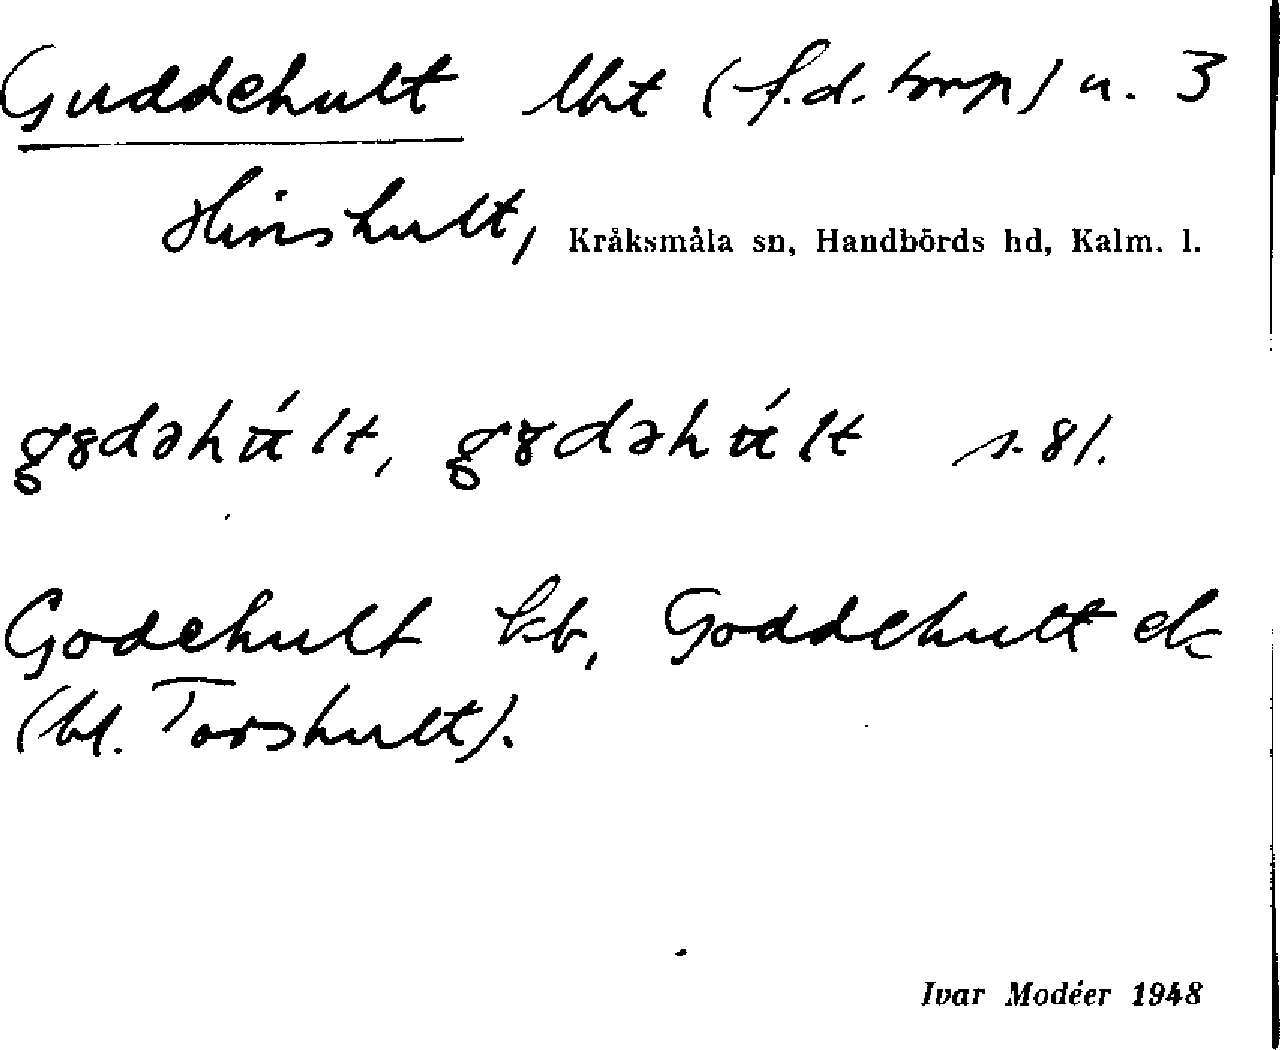 Guddehult lht (f.d. torp) u. 3
Hinshult, Kråksmåla sn, Handbörds hd, Kalm. l.
s. 81.
Godehult kb, Goddehult ek
(bl. Torshult).
Ivar Modéer 1948